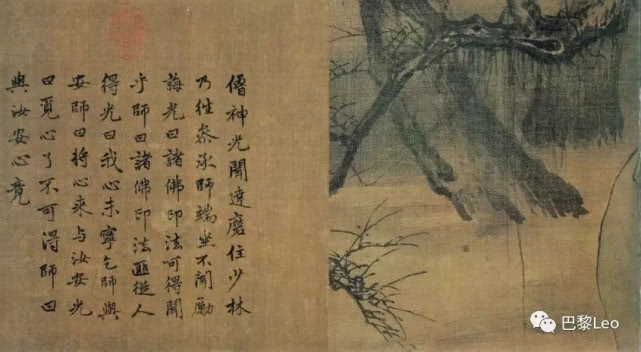 僧神光聞達磨住少林
乃往叅承師端坐不聞勵
誨光曰諸佛印法可得聞
乎師曰諸佛印法匪從人
得光曰我心未寧乞師與
安師曰將心來与汝安光
曰覓心了不可得師曰
與汝安心竟
巴黎Leo